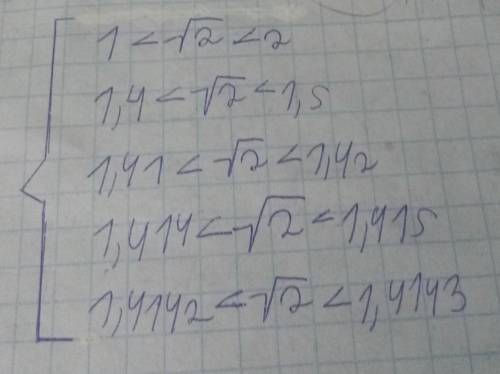 1 < √2 < 2
1,4 < √2 < 1,5
1,41 < √2 < 1,42
1,414 < √2 < 1,415
1,4142 < √2 < 1,4143